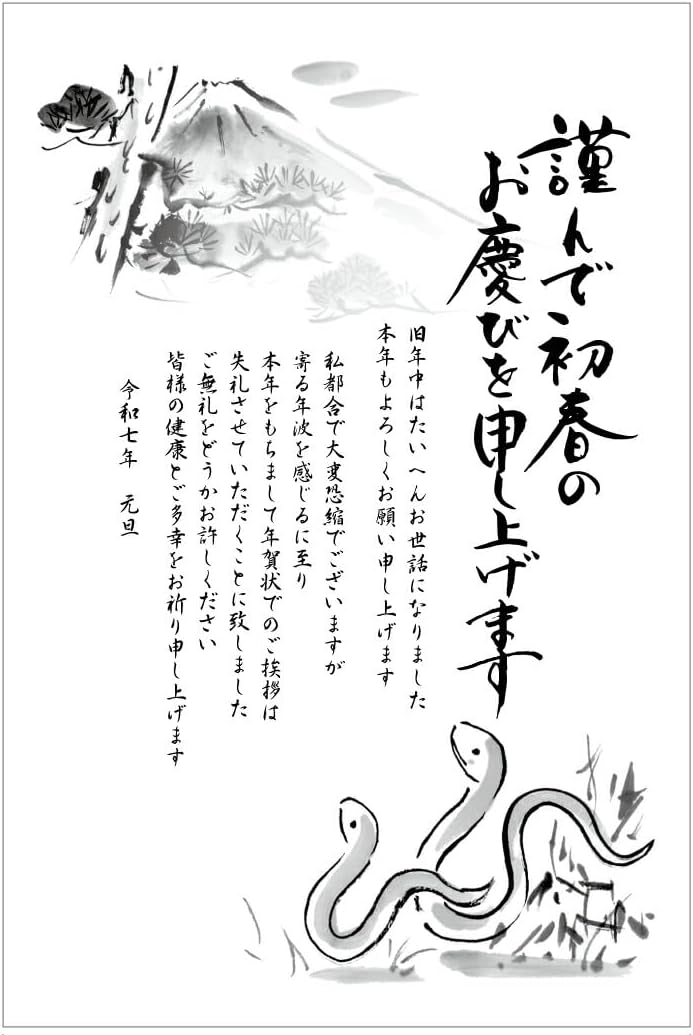 謹んで初春の
お慶びを申し上げます
旧年中はたいへんお世話になりました
本年もよろしくお願い申し上げます
私都合で大変恐縮でございますが
寄る年波を感じるに至り
本年をもちまして年賀状でのご挨拶は
失礼させていただくことに致しました
ご無礼をどうかお許しください
皆様の健康とご多幸をお祈り申し上げます
令和七年 元旦